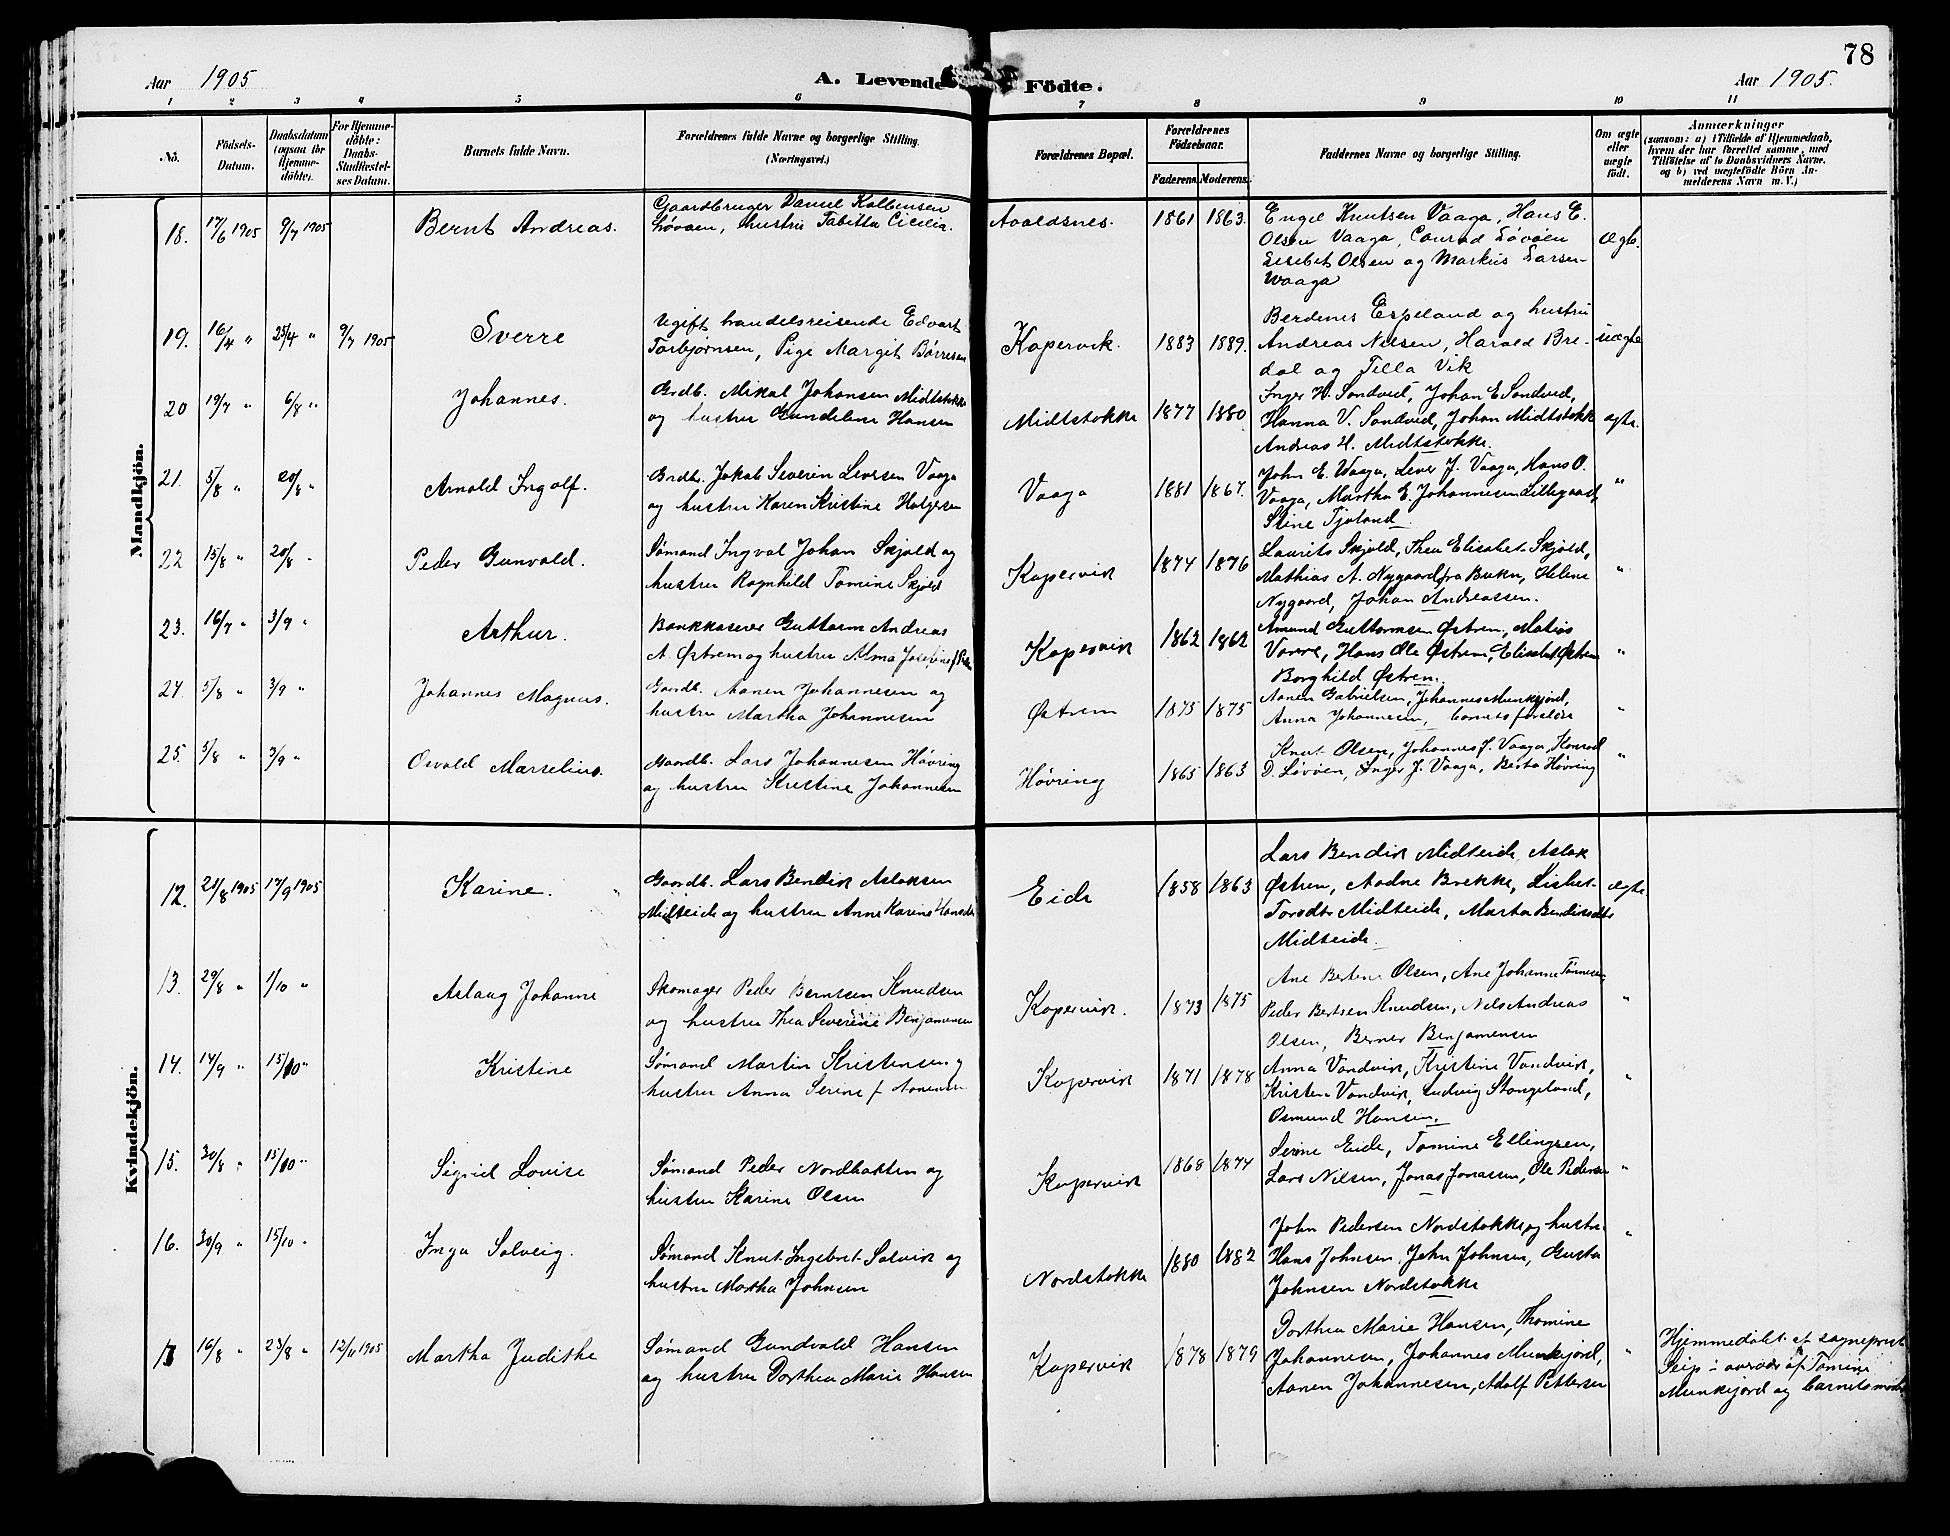 78
Aar 1905
A. Levende Födte.
Aar 1905.
1 2 3 4 5 6 7 8 9 10 11
No.
Födsels-Datum.
Daabsdatum (ogsaa for Hjemme-döbte).
For Hjemme-döbte: Daabs-Stadfæstel-ses Datum.
Barnets fulde Navn.
Forældrenes fulde Navne og borgerlige Stilling.
(Næringsvei.)
Forældrenes Bopæl.
Forældrenes Födselsaar.
Faderens. Moderens.
Faddernes Navne og borgerlige Stilling.
Om ægte eller uægte födt.
Anmærkninger
(saasom: a) i Tilfælde af Hjemmedaab, hvem der har forrettet samme, med Tilföielse af to Daabsvidners Navne, og b) ved uægtefödte Börn Anmelderens Navn m. V.)
Mandkjön.
18. 17/6 1905 9/7 1905 Bernt Andreas.
Gaardbruger Daniel Kolbensen
Løvøen, hustru Tabitta Cicilia.
Avaldsnes. 1861 1863.
Engel Knutsen Vaaga, Hans E.
Olsen Vaaga, Conrad Løvøen
Lissibet Olsen og Markus Larsen
Waaga
Ægte.
19. 16/4 " 23/4 " 9/7 1905 Sverre
Ugift handelsreisende Edvart
Torbjørnsen, Pige Margit Børresen
Kopervik. 1883 1889.
Berdenes Espeland og hustru
Andreas Nilsen, Harald Bre-
dal og Tilla Vik
uægte
20 19/7 " 6/8 " Johannes.
Grdb. Mikal Johansen Midtstokke
og hustru Gundeline Hansen
Midtstokke 1877 1880
Inger H. Sandved, Johan E Sandved,
Hanna V. Sandved, Johan Midtstokke
Andreas H. Midtstokke.
ægte.
21. 5/8 " 20/8 " Arnold Ingolf.
Grdb. Jakob Severin Leversen Vaaga
og hustru Karen Kristine Holgersen
Vaaga 1881 1867.
John E. Waaga, Lever J. Vaaga, Hans O.
Vaaga, Martha E. Johannesen Lillegaard,
Stine Tjoland
"
22 15/8 " 20/8 " Peder Gunvald.
Sømand Ingval Johan Skjold og
hustru Ragnhild Tomine Skjold
Kopervik 1874 1876
Laurits Skjold, Thea Elisabet Skjold,
Mathias A. Nygaard fra Bukn, Helene
Nygaard, Johan Andreassen.
"
23. 16/7 " 3/9 " Arthur.
Bankkaserer Guttorm Andreas
A. Østrem og hustru Alma Josefine
Kopervik 1862 1862
Amund Guttormsen Østrem, Matias
Varre, Hans Ole Østrem, Elisabet Østrem
Borghild Østrem.
"
24. 5/8 " 3/9 " Johannes Magnus.
Gaardb. Aanen Johannesen og
hustru Martha Johannesen
Østrem 1875 1875
Aanen Gabrielsen, Johannes Munkejord,
Anna Johannesen, barnets forældre
"
25. 5/8 " 3/9 " Osvald Marselius.
Gaardb. Lars Johannesen Høvring
og hustru Kristine Johannesen
Høvring 1865 1863
Knut Olsen, Johannes J. Vaaga, Konrad
D. Løvøen, Inger J. Vaaga, Berta Høvring
"
Kvindekjön.
12. 21/8 1905 17/9 1905 Karine.
Gaardb. Lars Bendik Aslaksen
Midteide og hustru Anne Karine
Eide 1858 1863
Lars Bendik Midteide, Aslak
Østrem, Aadne Brekke, Lisbet
Midteide, Marta Bendiksdtr
Midteide.
ægte
13. 29/8 " 1/10 " Aslaug Johanne
Skomager Peder Berntsen Knudsen
og hustru Thea Severine Benjamensen
Kopervik. 1873 1875
Ane Bertine Olsen, Ane Johanne Tønnesen,
Peder Bertsen Knudsen, Nels Andreas
Olsen, Berner Benjamensen
"
14. 14/9 " 15/10 " Kristine
Sømand Martin Kristensen og
hustru Anna Serine f.
Kopervik 1871 1878
Anna Vandvik, Kristine Vandvik,
Kristen Vandvik, Ludvig Stangeland,
Osmund Hansen.
"
15. 30/8 " 15/10 " Sigrid Lovise
Sømand Peder Nordbakken og
hustru Karine Olsen
Kopervik 1868 1874
Serine Eide, Tomine Ellingsen,
Lars Nilsen, Jonas Jonassen, Ole Pedersen
"
16. 30/9 " 15/10 " Inga Solveig.
Sømand Knut Ingebret Solvik og
hustru Martha Johnsen
Nordstokke 1880 1882
John Pedersen Nordstokke og hustru
Hans Johnsen, John Johnsen, Gusta
Johnsen Nordstokke
"
17 16/8 " 23/8 " 12/11 1905 Martha Judithe
Sømand Gundvald Hansen
og hustru Dorthea Marie Hansen
Kopervik 1878 1879
Dorthea Marie Hansen, Thomine
Johannesen, Johannes Munkejord,
Aanen Johannesen, Adolf Pettersen
"
Hjemmedøbt af sogneprest
i overvær af Tomine
Munkejord og barnets moder